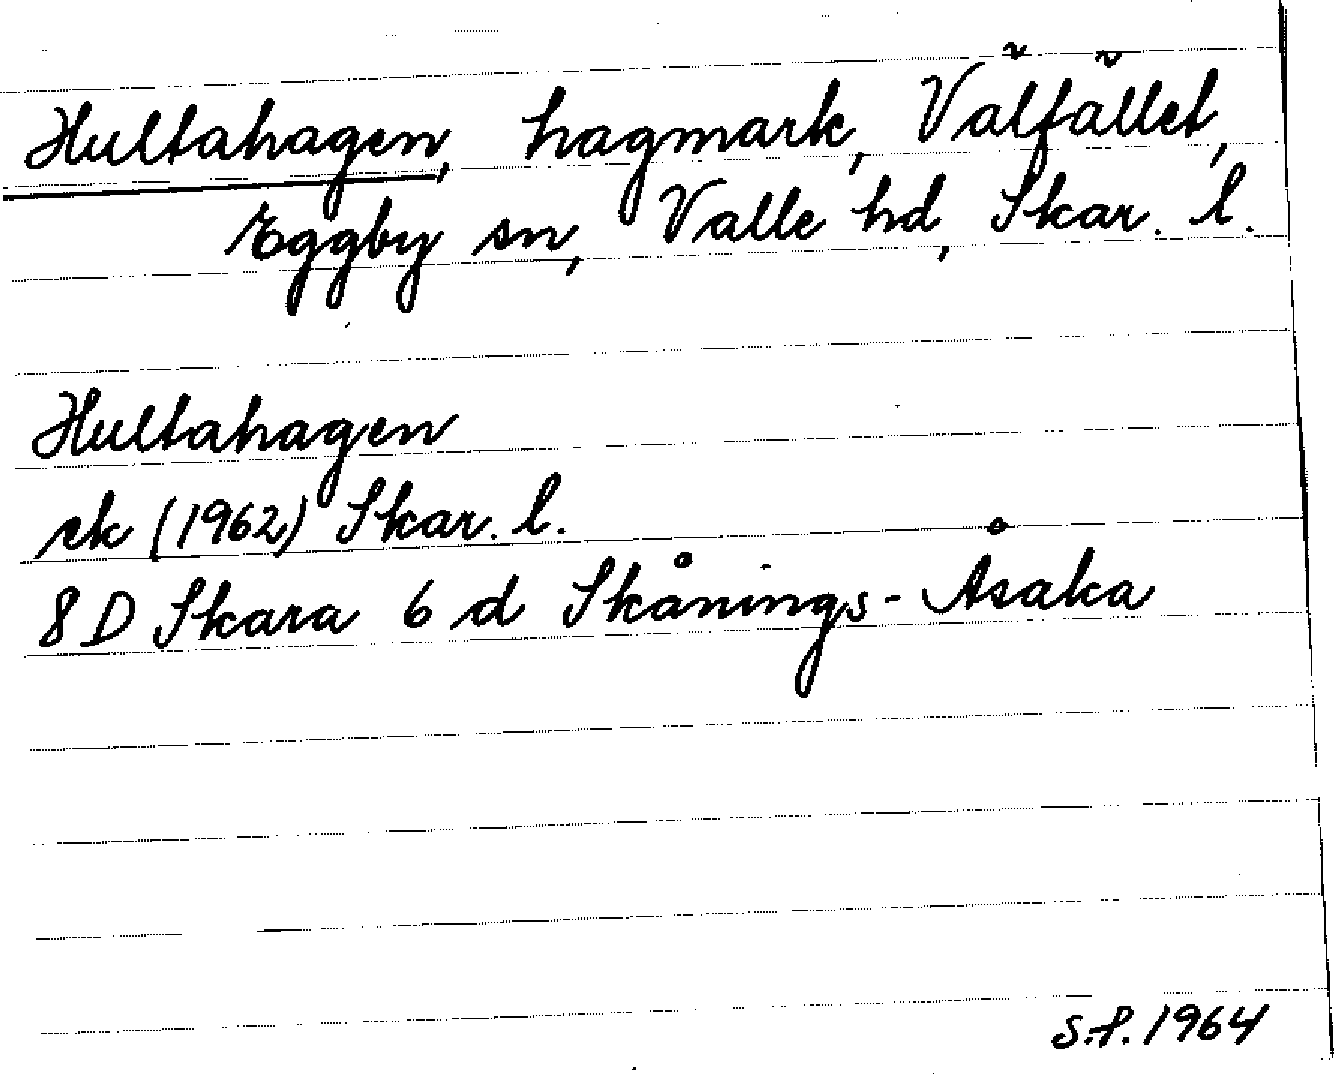 Hultahagen, hagmark, Vălfället,
Eggby sn, Valle hd, Skar. l.
Hultahagen
ek (1962) Skar. l.
8 D Skara 6 d Skånings-Åsaka
S.P. 1964